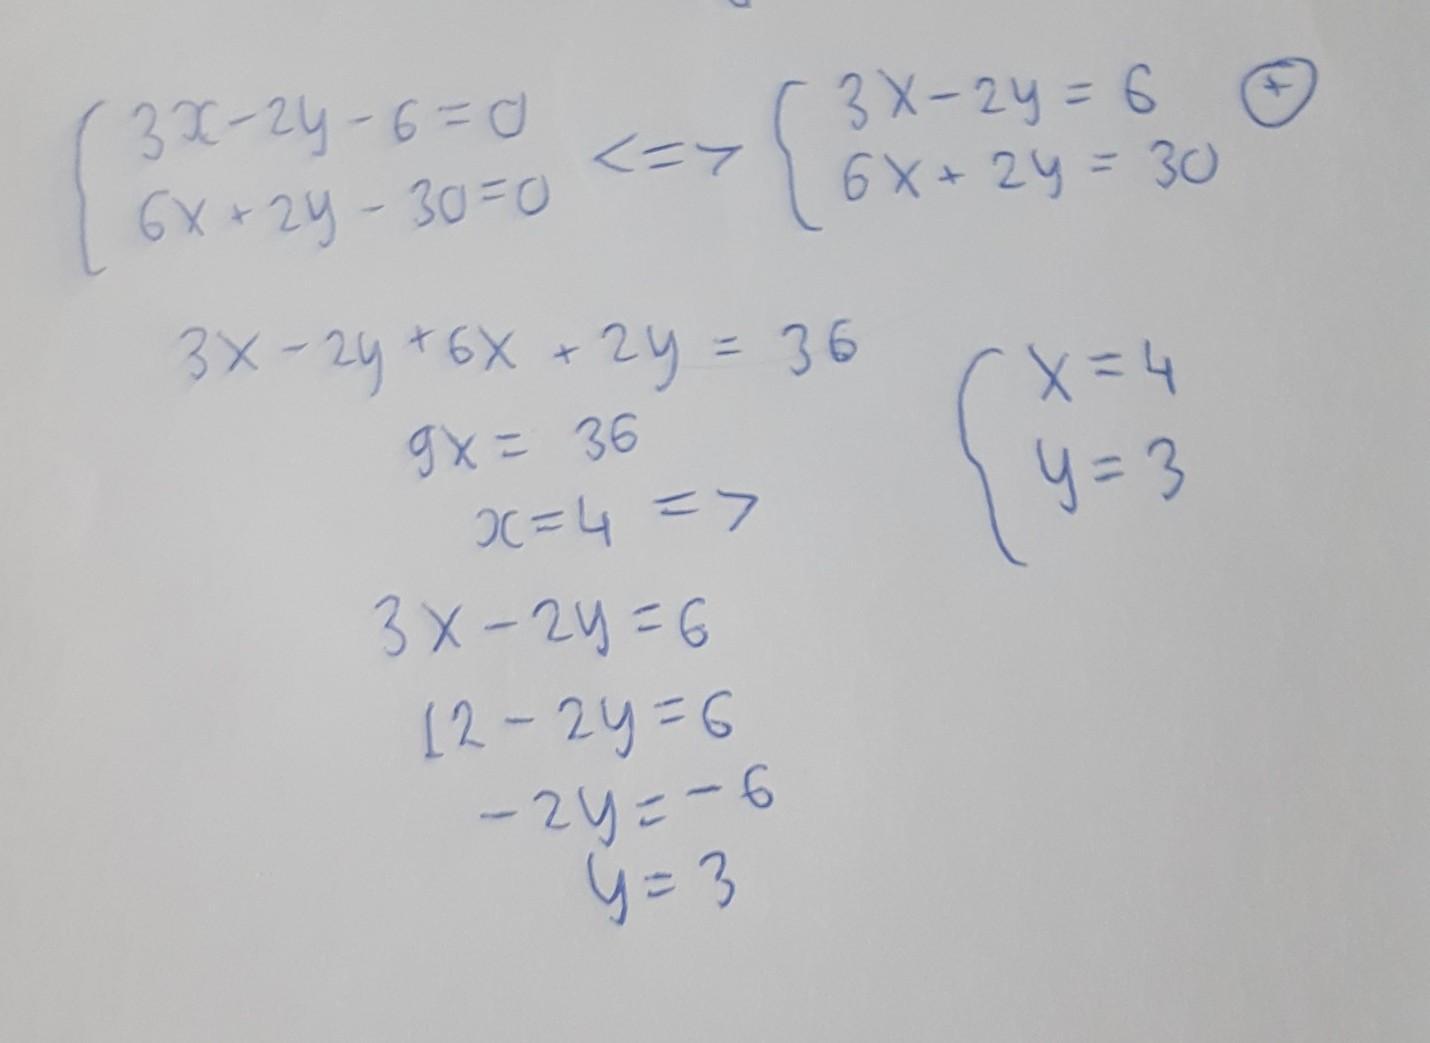 { 3x-2y-6=0 <=> { 3x-2y=6 (+)
6x+2y-30=0 6x+2y=30
3x-2y+6x+2y=36
9x=36
x=4 =>
3x-2y=6
12-2y=6
-2y=-6
y=3
{ x=4
y=3